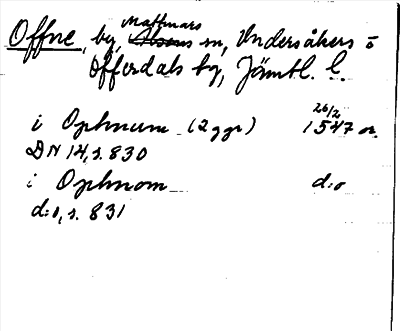 Offne, by, Mattmars sn, Undersåkers o
Offerdals tg, Jämtl. l.
i Ophnum (2 ggr) 26/2 1547 or.
DN 14, s. 830
i Ophnom d:o
d:o, s. 831